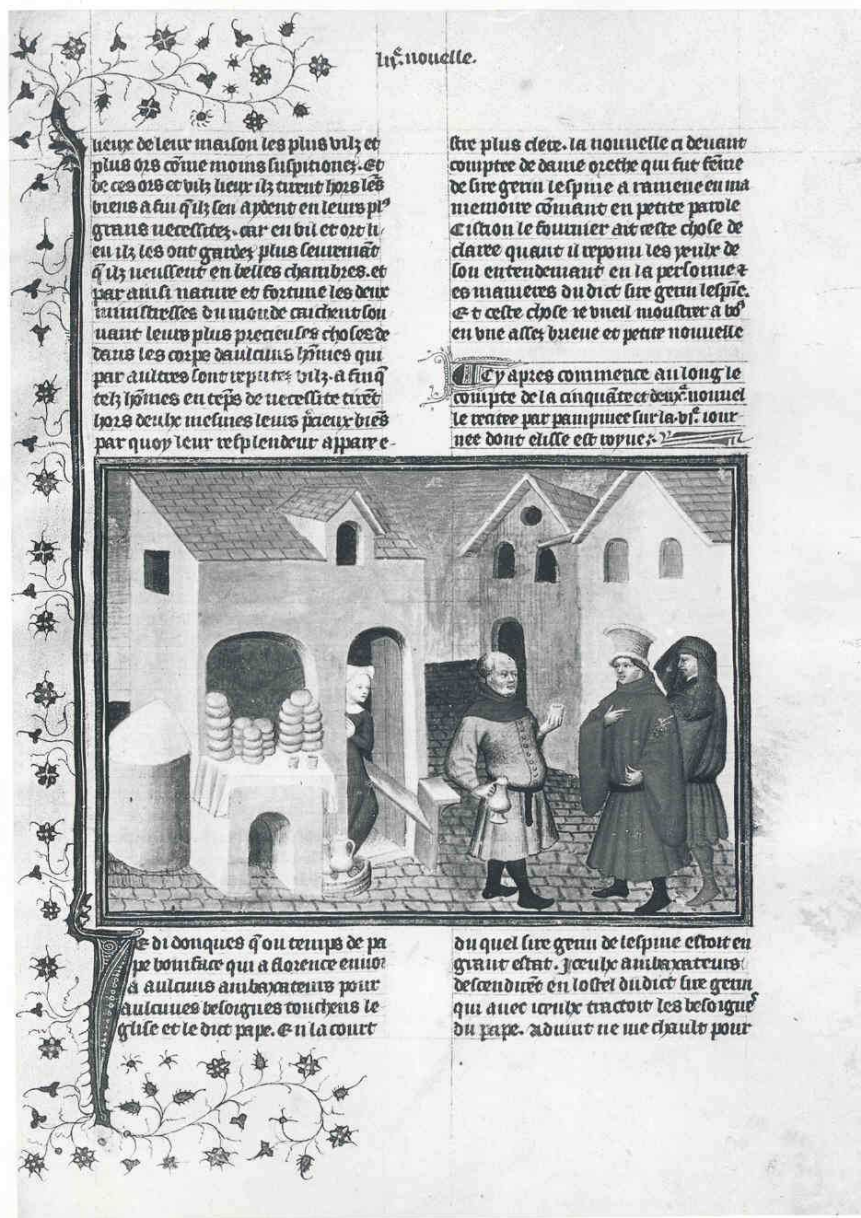 lii.e nouelle.
lieux de leur maison les plus vilz et
plus ors cōme moins suspitionez. Et
de ces ors et vilz lieux ilz tirent hors les
biens a fin q̄ ilz sen aydent en leurs pl9
grans necessitez. car en vil et ort li-
eu ilz les ont gardez plus seuremāt
q̄ ilz neussent en belles chambres. et
par ainsi nature et fortune les deux
ministresses du monde cauchent sou
uant leurs plus precieuses choses de
dans les corps daulcuns hōmes qui
par aultres sont reputez vilz. a fin q̄
telz hōmes en tēps de necessite tirēt
hors deulx mesmes leurs p̄cieux biēs
par quoy leur resplendeur appare e-
stre plus clere. la nouuelle ci deuant
comptee de dame orethe qui fut fēme
de sire gerin lespine a ramene en ma
memoire cōmant en petite parole
Cistion le fournier ait ceste chose de
claree quant il reponu les yeulx de
son entendemant en la personne et
es manieres du dict sire gerin lespīe.
Et ceste chose ie vueil moustrer a vo9
en vne assez brieue et petite nouuelle
Cy apres commence au long le
compte de la cinquāte et deuxe nouuel
le recitee par pampinee sur la .vi.e iour
nee dont elisse est royne.
Je di donques q̄ ou temps de pa
pe boniface qui a florence enuoi
a aulcuns ambaxateurs pour
aulcunes besoignes touchens le
glise et le dict pape. En la court
du quel sire gerin de lespine estoit en
grant estat. Iceulx ambaxateurs
descendirēt en lostel du dict sire gerin
qui auec iceulx tractoit les besoignes
du pape. Aduint ne me chault pour